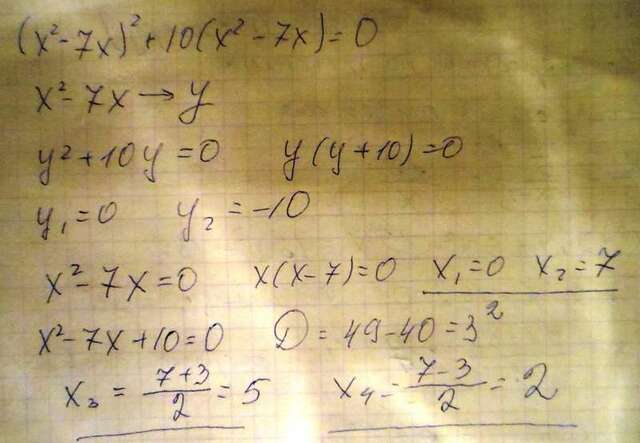 (x²-7x)²+10(x²-7x)=0
x²-7x→y
y²+10y=0 y(y+10)=0
y₁=0 y₂=-10
x²-7x=0 x(x-7)=0 x₁=0 x₂=7
x²-7x+10=0 D=49-40=3²
x₃=(7+3)/2=5 x₄=(7-3)/2=2